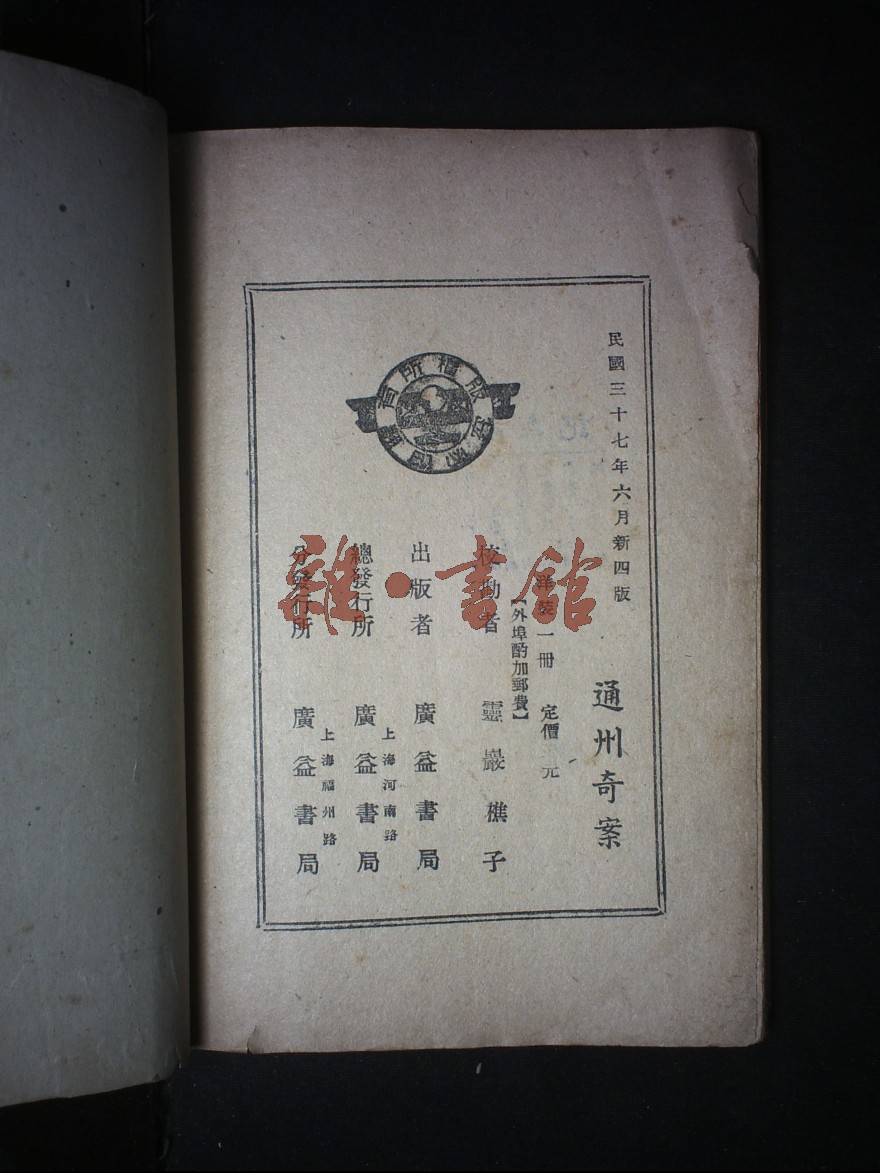 民國三十七年六月新四版
通州奇案
洋裝一冊 定價 元
【外埠酌加郵費】
校勘者 靈巖樵子
出版者 廣益書局
總發行所 上海河南路 廣益書局
分發行所 上海福州路 廣益書局
版權所有
雜·書館